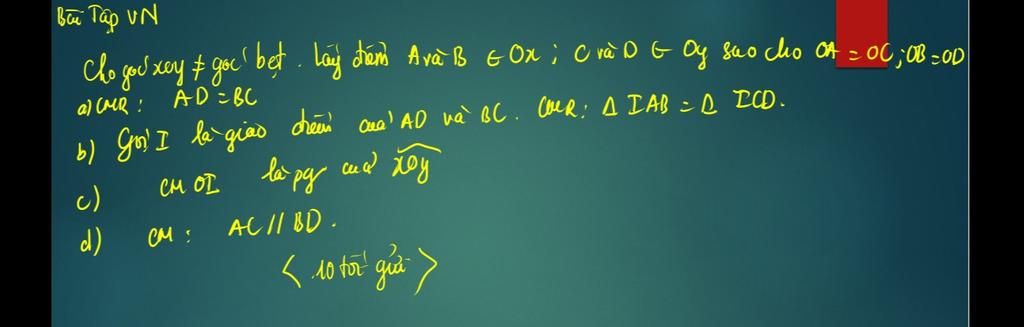 Bài Tập VN
Cho góc xoy ≠ góc bẹt. Lấy điểm A và B ∈ Ox; C và D ∈ Oy sao cho OA = OC; OB = OD
a) CMR: AD = BC
b) Gọi I là giao điểm của AD và BC. CMR: Δ IAB = Δ ICD.
c) CM OI là pg của xOy
d) CM: AC // BD.
< 10 tối gửi >